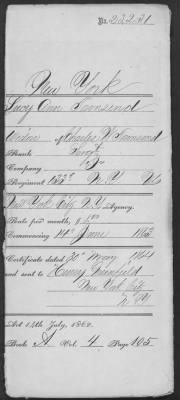 No. 23221
New York
Lucy Ann Townsend
Widow of Charles P. Townsend
Rank
Company
Regiment 133d N.Y. Vols
New York City N.Y. Agency.
Rate per month, $8.00
Commencing 14th June 1863
Certificate dated 30th May 1864
and sent to Henry
New York City
N.Y.
Act 14th July, 1862.
Book A Vol. 4 Page 105